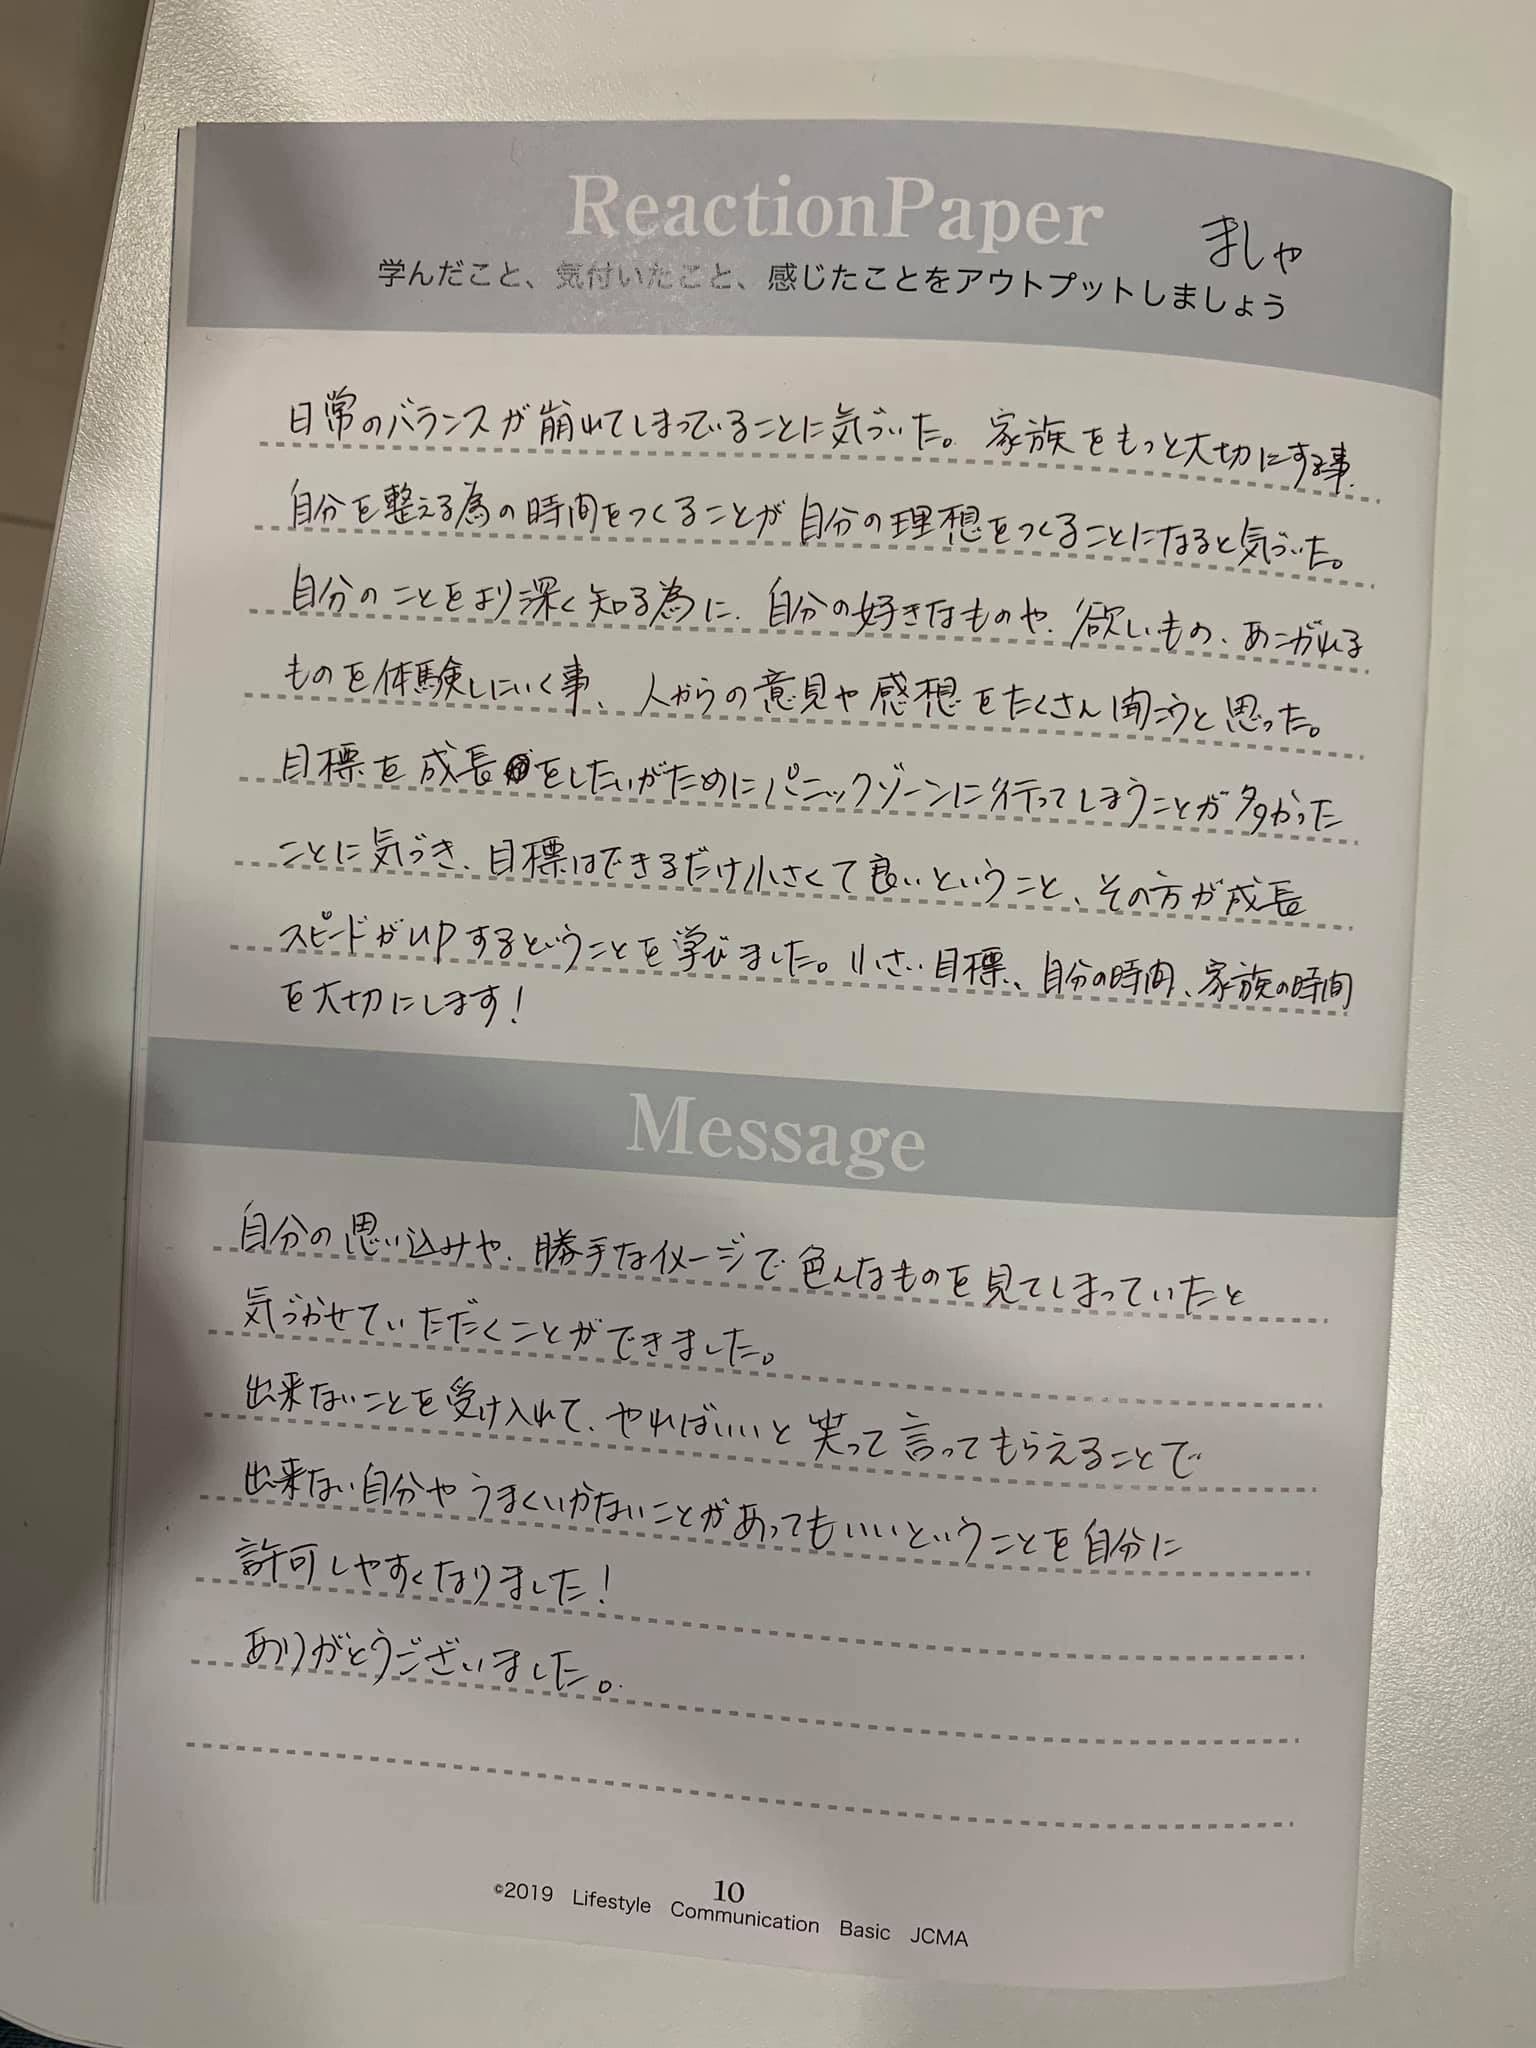 ReactionPaper
ましゃ
学んだこと、気付いたこと、感じたことをアウトプットしましょう
日常のバランスが崩れてしまっていることに気づいた。家族をもっと大切にする事、
自分を整える為の時間をつくることが自分の理想をつくることになると気づいた。
自分のことをより深く知る為に、自分の好きなものや、欲しいもの、あこがれる
ものを体験しにいく事、人からの意見や感想をたくさん聞こうと思った。
目標を成長をしたいがためにパニックゾーンに行ってしまうことが多かった
ことに気づき、目標はできるだけ小さくて良いということ、その方が成長
スピードがUPするということを学びました。小さい目標、自分の時間、家族の時間
を大切にします!
Message
自分の思い込みや、勝手なイメージで色んなものを見てしまっていたと
気づかせていただくことができました。
出来ないことを受け入れて、やればいいと笑って言ってもらえることで
出来ない自分やうまくいかないことがあってもいいということを自分に
許可しやすくなりました!
ありがとうございました。
10
©2019 Lifestyle Communication Basic JCMA